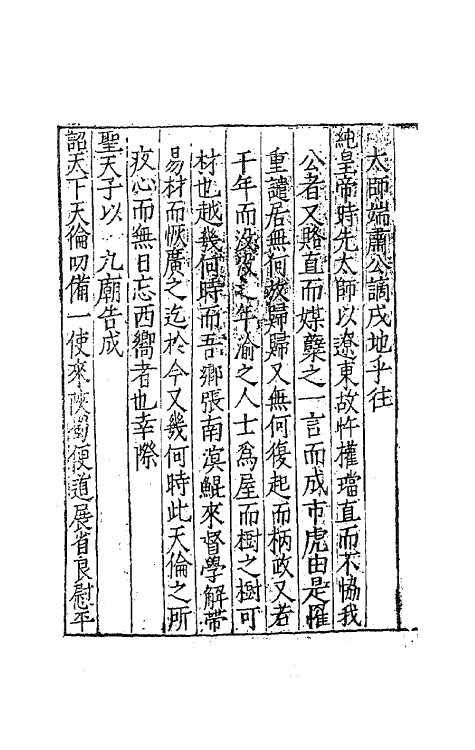 太師端肅公謫戍地乎往
純皇帝時先太師以遼東故忤權璫直而不恊我
公者又賂直而媒櫱之一言而成市虎由是罹
重譴居無何放歸歸又無何復起而柄政又若
千年而沒沒之年渝之人士為屋而樹之樹可
材也越幾何時而吾鄉張南溟鯤來督學解帶
易材而恢廣之迄於今又幾何時此天倫之所
疚心而無日忘西嚮者也幸際
聖天子以 九廟告成
詔天下天倫叨備一使來陝蜀便道展省良慰平